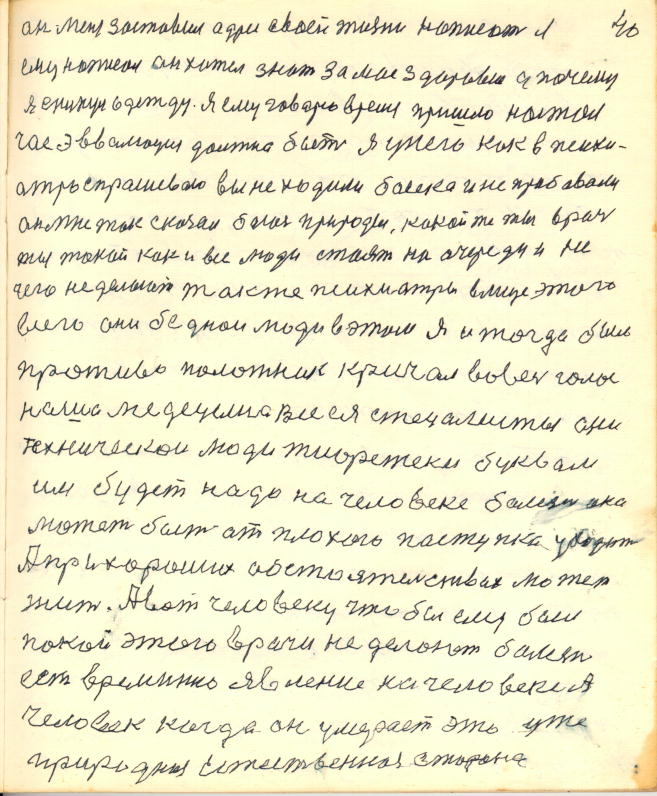 он меня заставил адрес своей жизни написат Я 40
ему написал он хотел знат за мое здоровие а почему
я скинул одежду. Я ему говорю время пришло настал
час эввалюция должна быть Я у него как в психи-
атра спрашеваю вы не ходили босека и не пробавали
он мне так сказал богач природы, какой же ты врач
ты такой как и все люди стаят на очереди и не
чего не делают также психиатры в лице этого
всего они бедной люди в этом Я и тогда был
противо положник кричал вовесч голос
наша медецена вся специалисты они
технической люди тиоретеки буквам
им будет надо на человеке болезн она
может быт от плохого паступка уходит
А при хороших обстоятелствах может
жит. А вот человеку что бы ему был
покой этого врачи не делоют болезн
ест временно явление на человеке А
человек когда он умерает это уже
природная естественная сторона